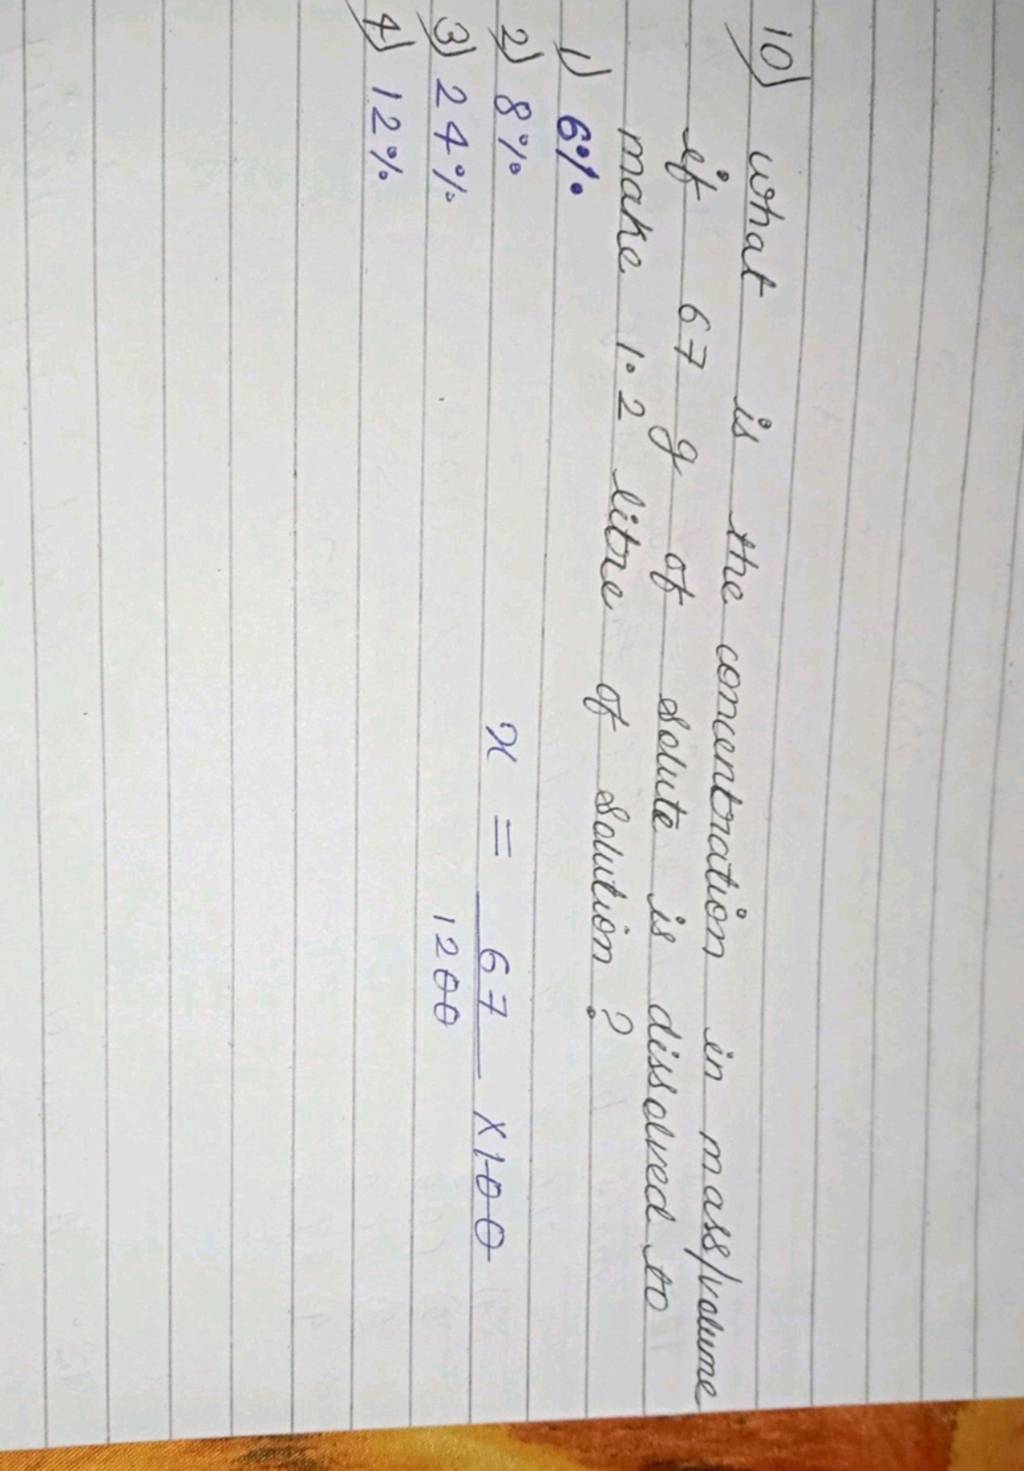 10) what is the concentration in mass/volume
if 67 g of solute is dissolved to
make 1.2 litre of solution ?
1) 6%
2) 8%
3) 24%
4) 12%
x = 67 × 100
1200